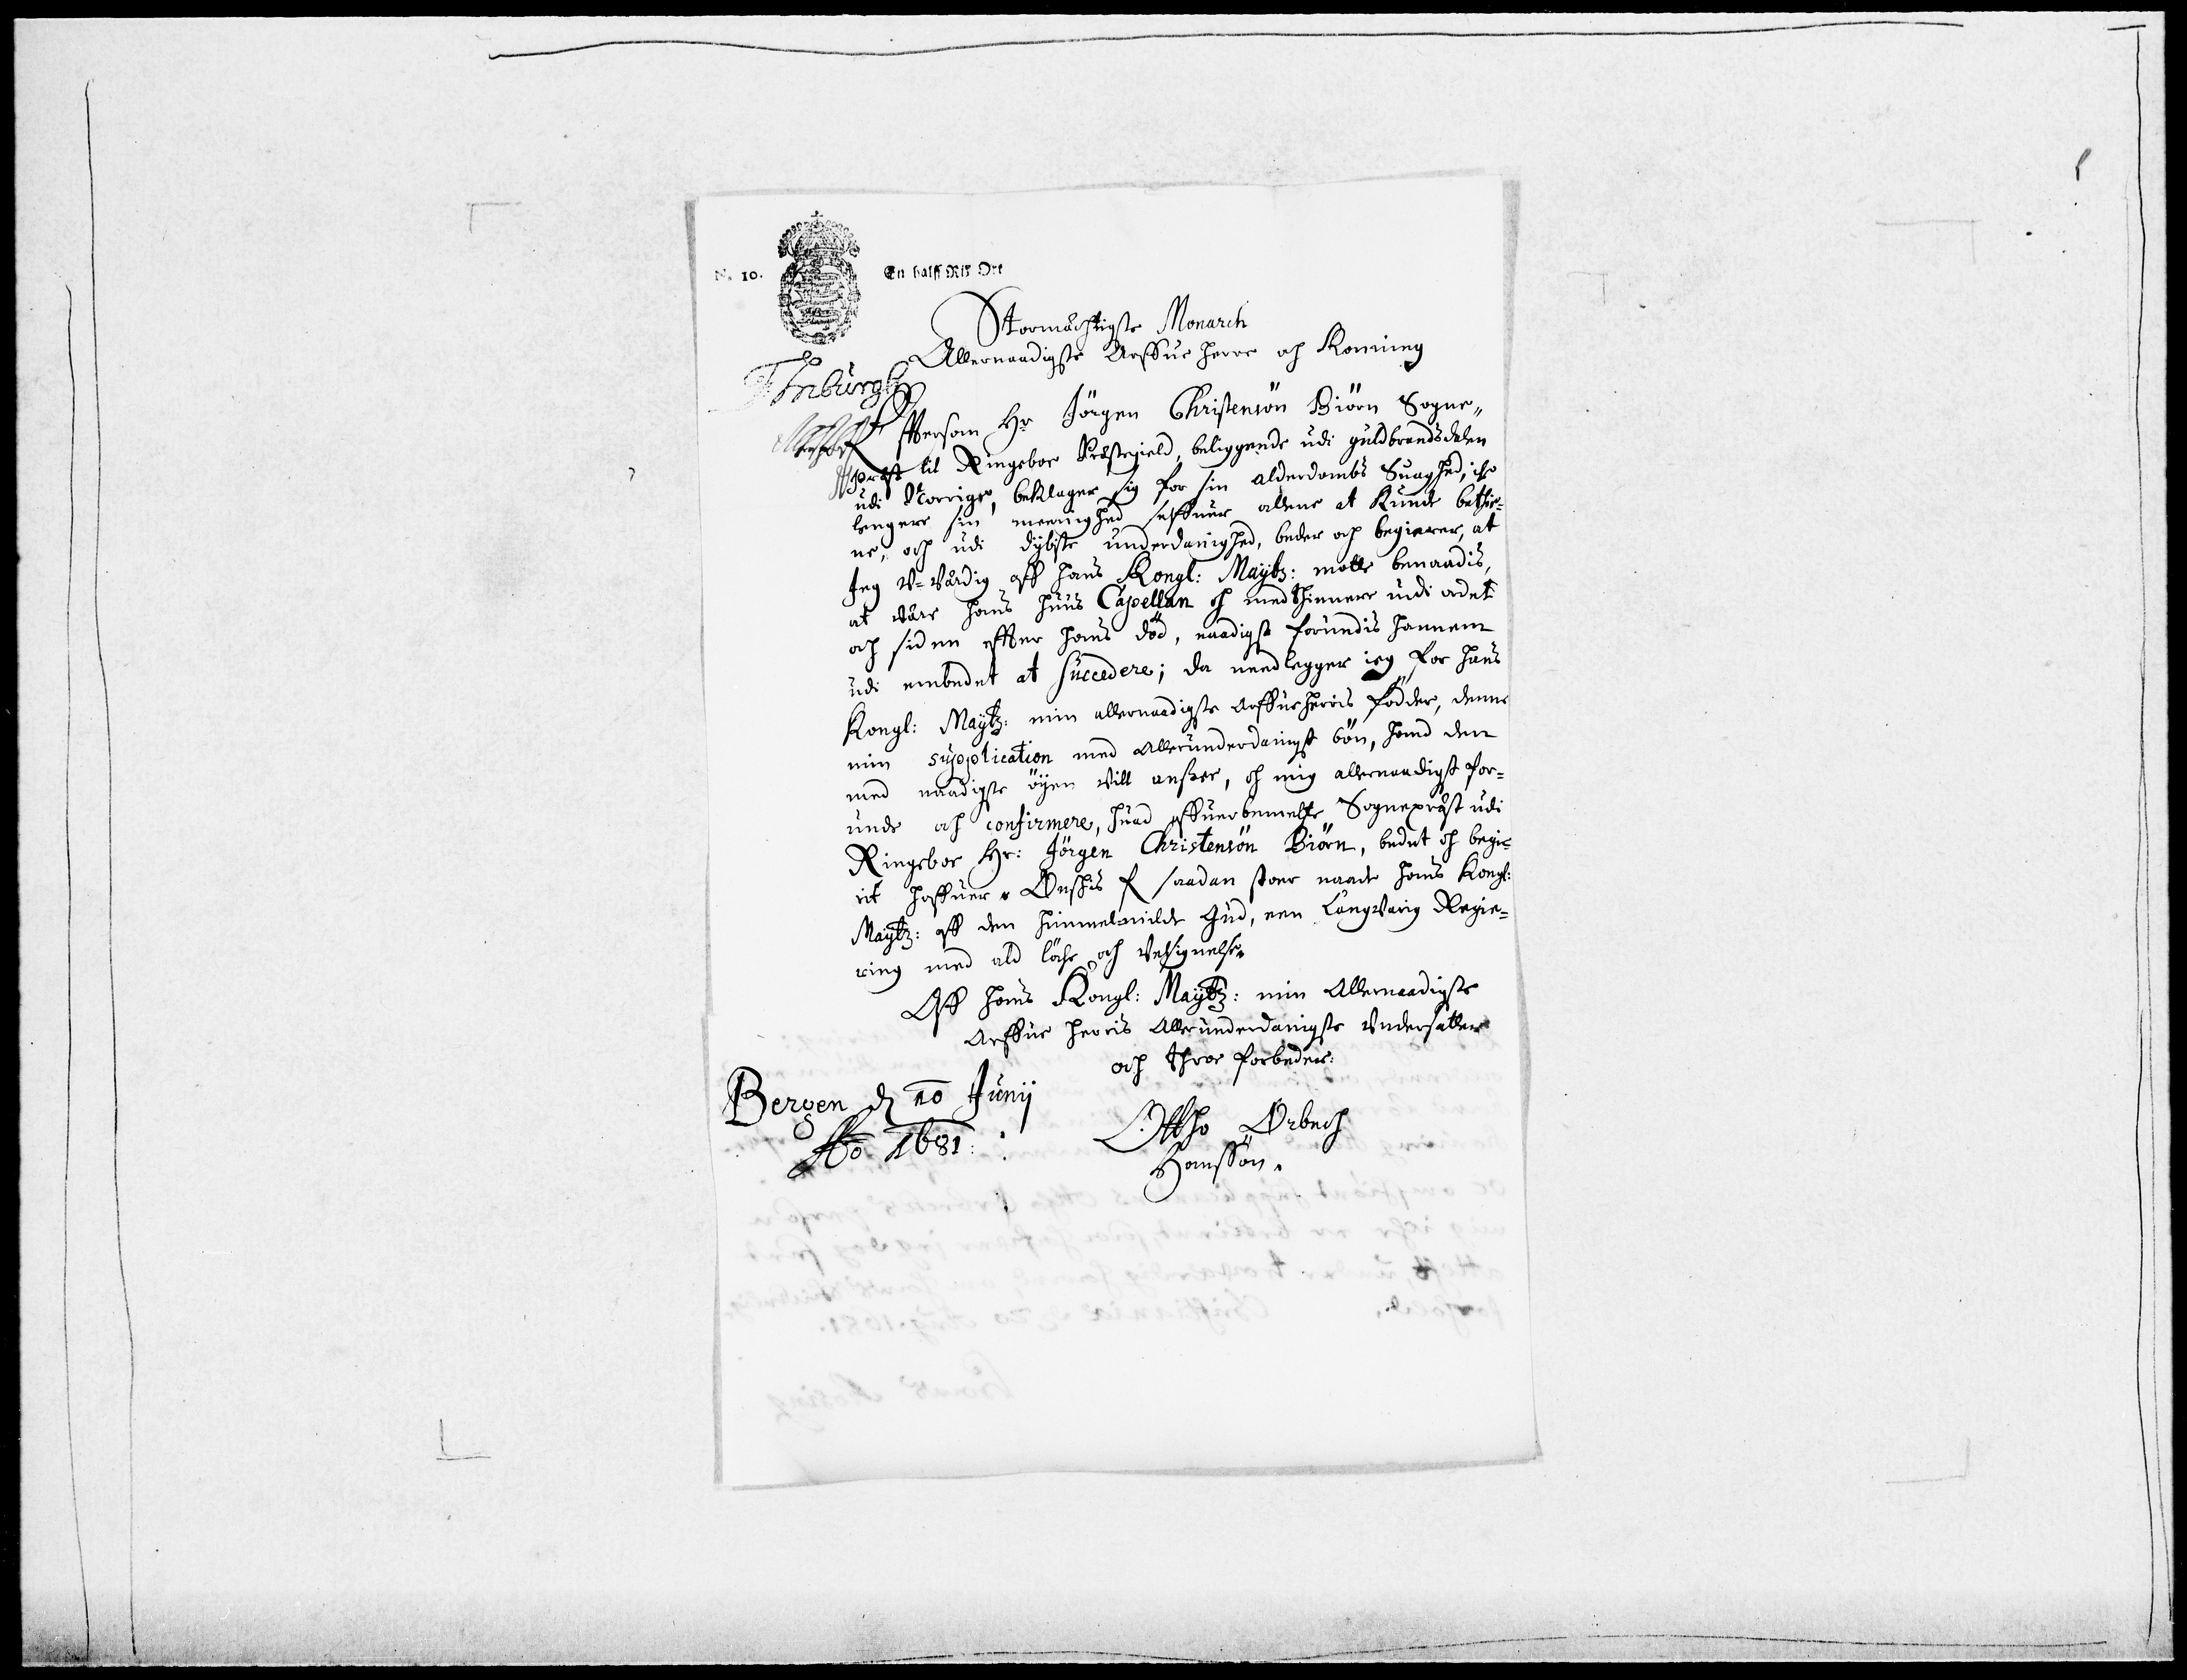 No 10.
En halff Rix Ort
Stormächtigste Monarch
Allernaadigste Arffue Herre och Konning
Effthersom Hr Jörgen Christensön Biörn Sogne-
præst til Ringeboe Præstegield, beliggende udi guldbrandsdalen
udi Norrige, beklager sig for sin alderdombs Suaghed, iche
lengere sin meenighed seffuer allene at kunde bethie-
ne, och udi dybste underdanighed, beder och begierer, at
Jeg v-värdig aff hans Kongl: Maytz: motte benaadis,
at være hans huus Capellan och medthiennere udi ordet
och siden effter hans död, naadigst forundis hannem
udi embedet at succedere; da needlegger ieg for hans
Kongl: Maytz: min allernaadigste arffueherris födder, denne
min supplication med allerunderdanigst bön, hand den
med naadigste öyen vill ansee, och mig allernaadigst for-
unde och confirmere, huad offuerbemelte Sognepræst udi
Ringeboe Hr: Jörgen Christensön Biörn, bedet och begie-
rit haffuer. Ønschis for saadan stoer naade hans Kongl:
Maytz: aff den himmelmilde Gud, een langvarig Regie-
ring med ald löche och velsignelse
Aff hans Kongl: Maytz: min Allernaadigste
Arffue Herris Allerunderdanigste Undersatte
och throe forbedere:
Bergen d 10 Junij
Ao 1681:
Ottho Orbech
Hanssön.